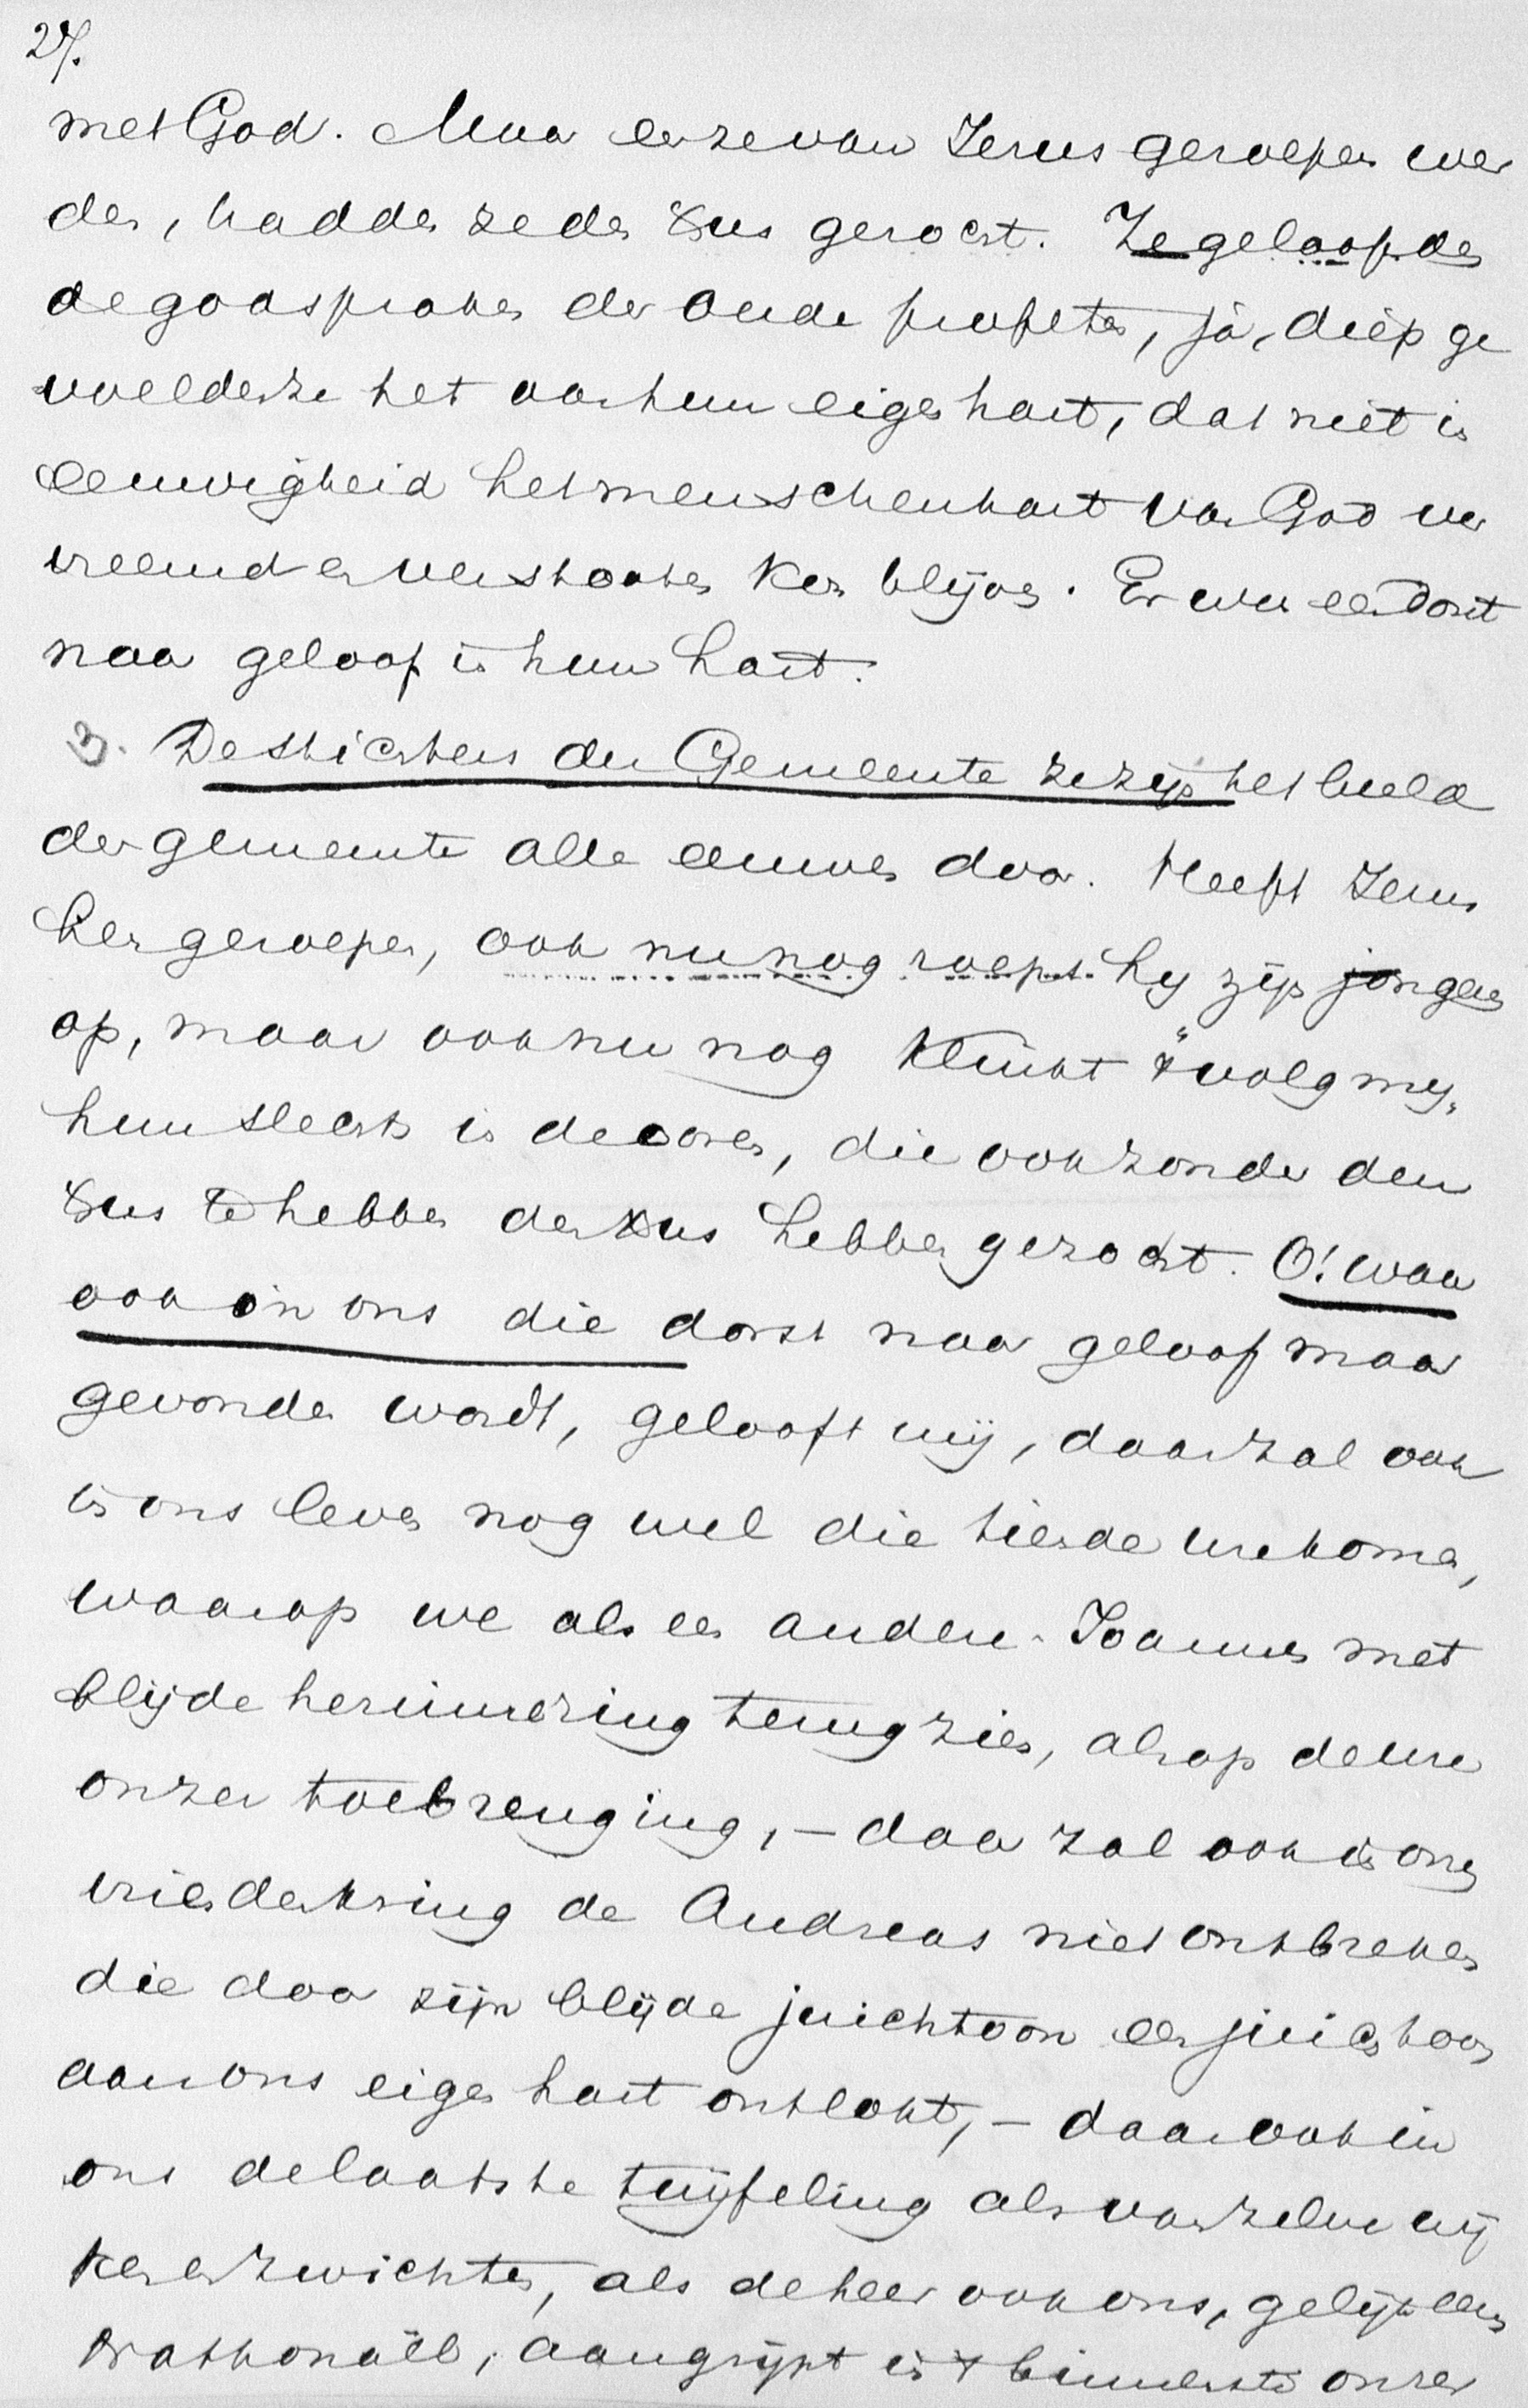 27.
met God. Maar eer ze van Jezus geroepen wer
den, hadden ze den Xus gezocht. Ze geloofden
de godspraken der oude profeten, ja, diep ge
voelden ze het aan hun eigen hart, dat niet in
eeuwigheid het menschenhart van God ver
vreemd en verstooten kon blijven. Er was een dorst
naar geloof in hun hart.
3. De stichters der Gemeente ze zijn het beeld
der gemeente alle eeuwen door. Heeft Jezus
hen geroepen, ook nu nog roept hij zijn jongeren
op, maar ook nu nog klinkt "volg mij"
hun slechts in de ooren, die ook zonder den
Xus te hebben den Xus hebben gezocht. O! waar
ook in ons die dorst naar geloof maar
gevonden wordt, gelooft mij, daar zal ook
in ons leven nog wel die tiende ure komen,
waarop we als een andere Joannes met
blijde herinnering terugzien, als op de ure
onzer toebrenging, – daar zal ook in ons
vriendenkring de Andreas niet ontbreken
die door zijn blijde juichtoon een juichtoon
aan ons eigen hart ontlokt, – daar ook in
ons de laatste twijfeling als van zelve wij
ken en zwichten, als de heer ook ons, gelijk eens
Nathonaël, aangrijpt in 't binnenste onzer